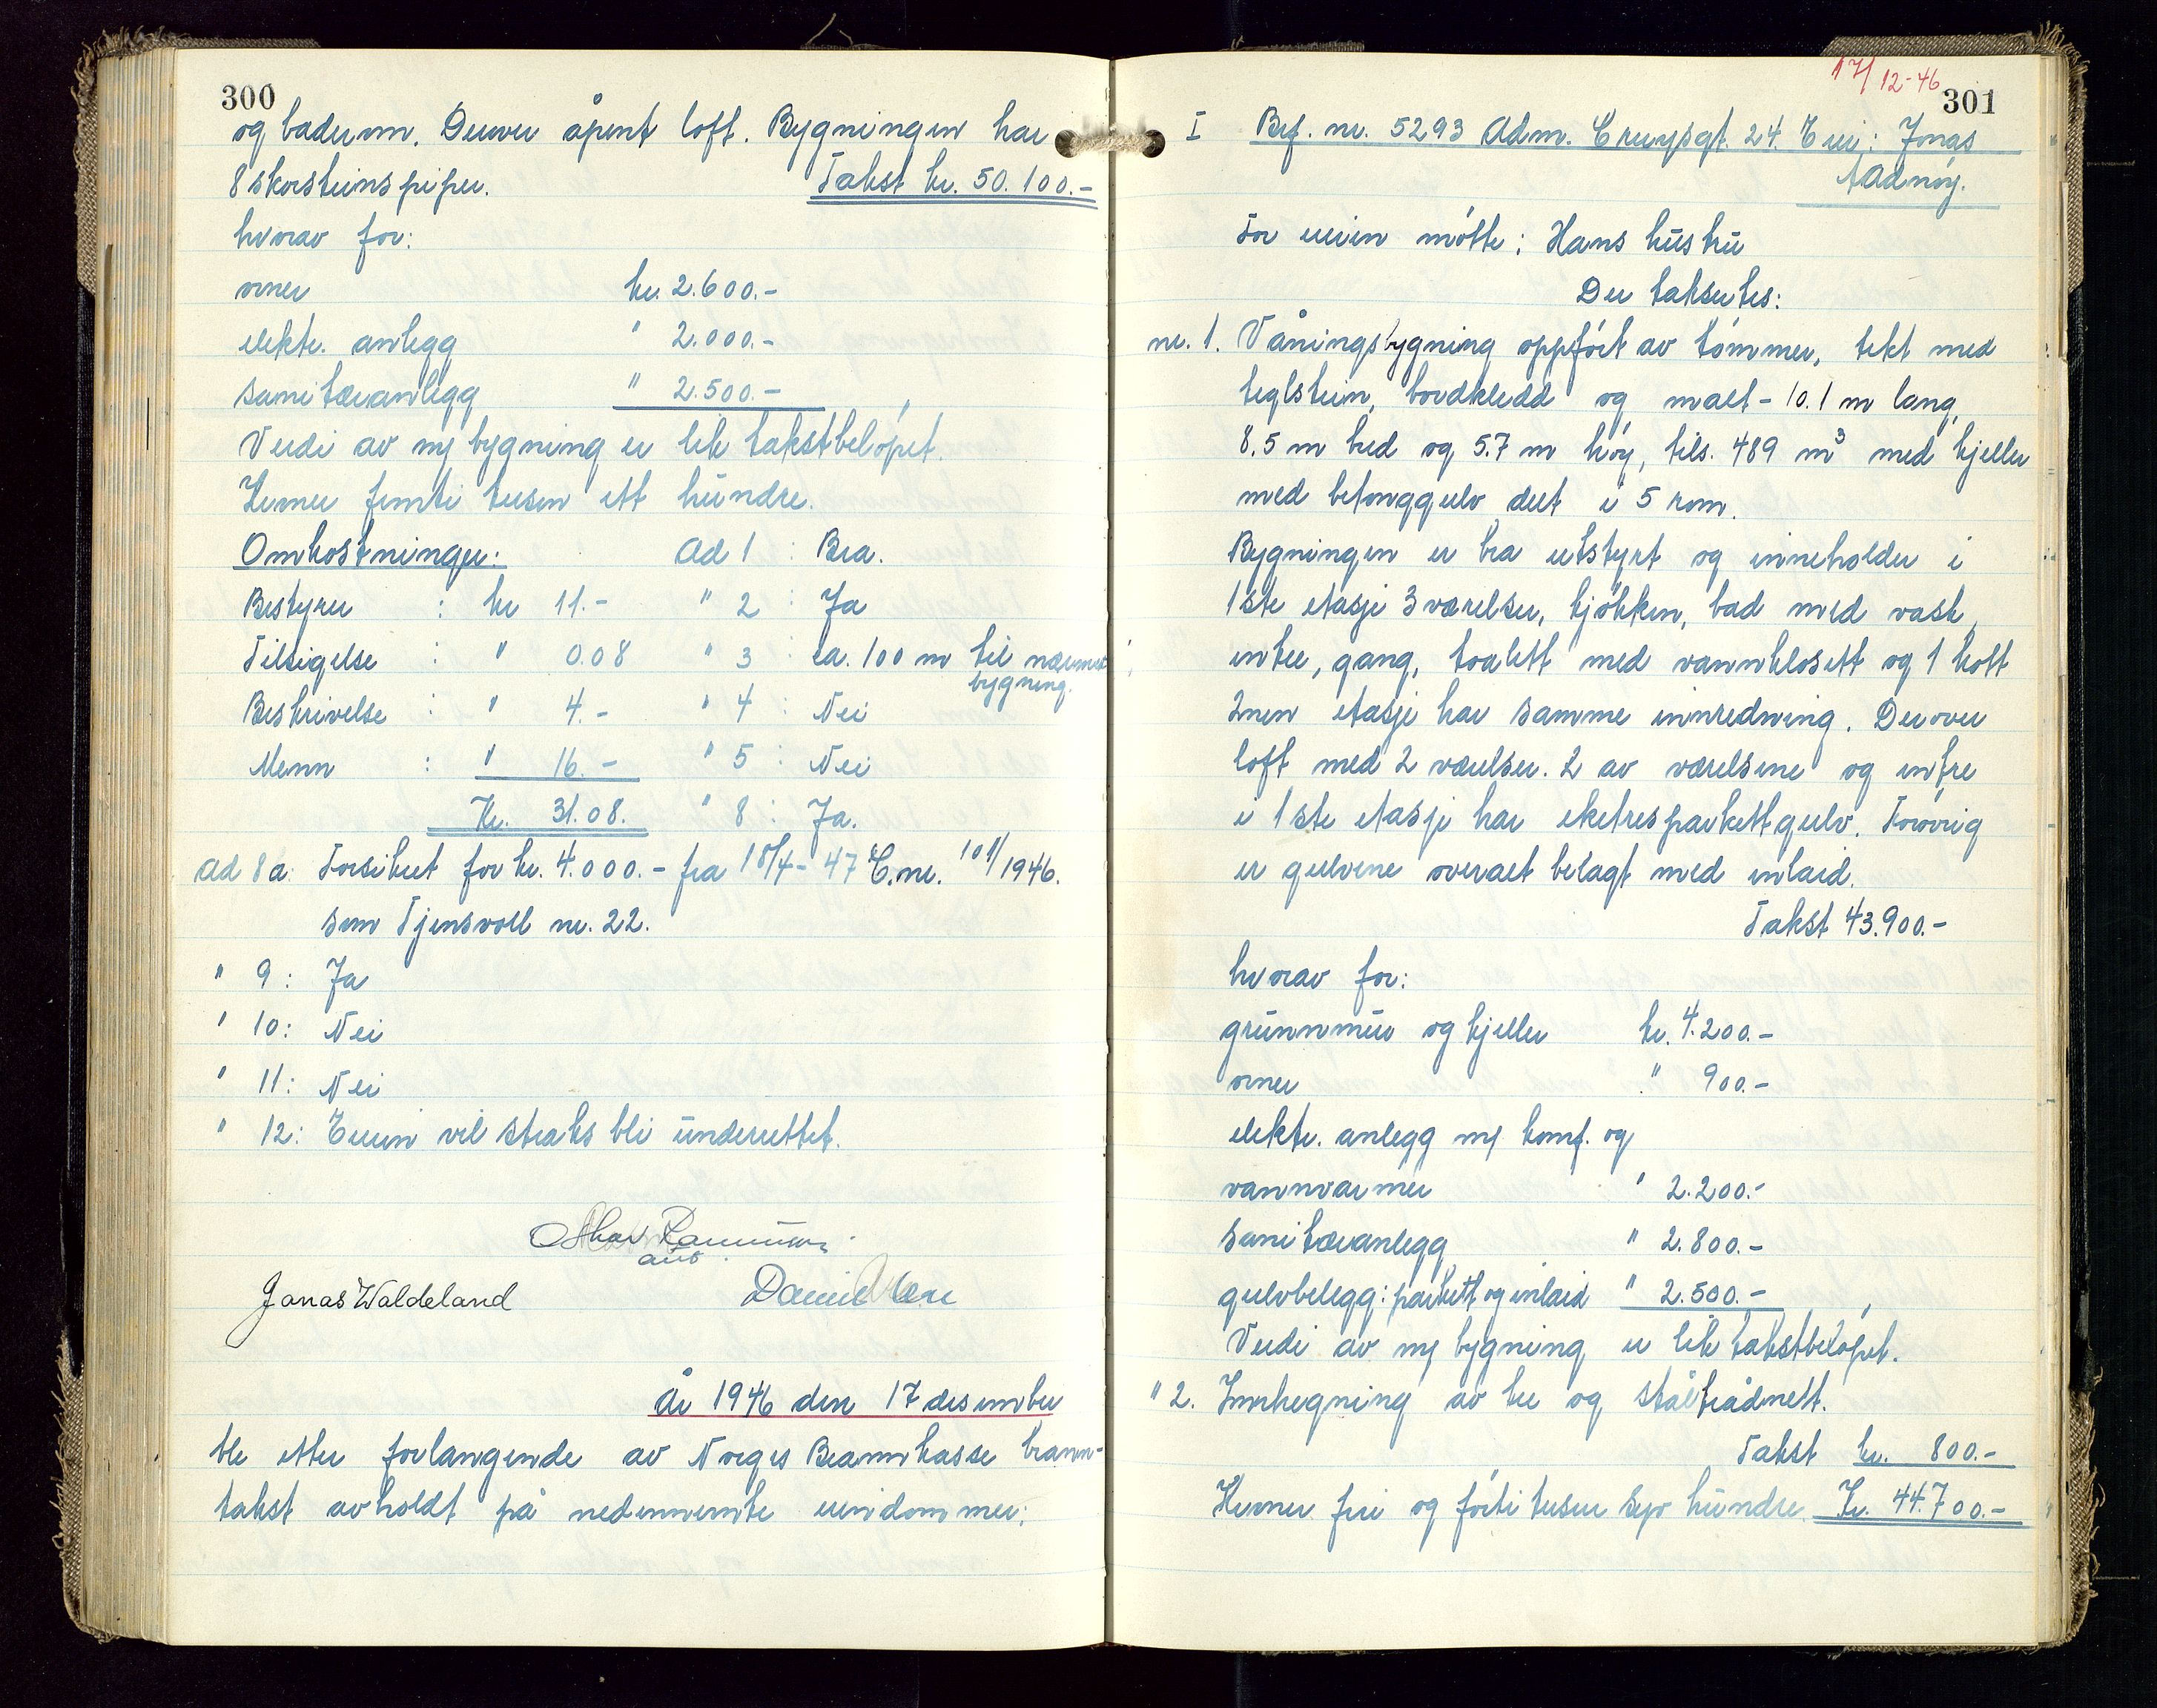 300
og baderum. Derover åpent loft. Bygningen har
8 skorsteinspiper. Takst kr. 50.100.-
hvorav for:
ovner kr. 2.600.-
elektr. anlegg " 2.000.-
sanitæranlegg " 2.500.-
Verdi av ny bygning er lik takstbeløpet.
Kroner femti tusen ett hundre.
Omkostninger: Ad 1 : Bra.
Bestyrer : kr 11.- " 2 : Ja
Tilsigelse : " 0.08 " 3 : ca. 100 m til nærmest
bygning.
Beskrivelse : " 4.- " 4 : Nei
Menn : " 16.- " 5 : Nei
Kr. 31.08. " 8 : Ja.
Ad 8a: Forsikret for kr. 4.000.- fra 18/4-47 C.nr. 101/1946.
som Tjensvoll nr. 22.
" 9: Ja
" 10: Nei
" 11: Nei
" 12: Eieren vil straks bli underrettet.
Jonas Waldeland Daniel
År 1946 den 17 desember
ble etter forlangende av Norges Brannkasse brann-
takst avholdt på nedennevnte eiendommer:
17/12-46
301
I Brf. nr. 5293 Adm. Cruysgt. 24. Eier: Jonas
Aadnøy.
For eieren møtte: Hans hustru
Der takseres:
nr. 1. Våningsbygning oppført av tømmer, tekt med
teglstein, bordkledd og malt - 10.1 m lang,
8.5 m bred og 5.7 m høy, tils. 489 m³ med kjeller
med betonggulv delt i 5 rom.
Bygningen er bra utstyrt og inneholder i
1ste etasje 3 værelser, kjøkken, bad med vask,
entre, gang, toalett med vannklosett og 1 kott
2nen etasje har samme innredning. Derover
loft med 2 værelser. 2 av værelsene og entre
i 1ste etasje har eketresparkettgulv. Forøvrig
er gulvene overalt belagt med inlaid.
Takst 43.900.-
hvorav for:
grunnmur og kjeller kr. 4.200.-
ovner " 900.-
elektr. anlegg m/ komf. og
vannvarmer " 2.200.-
sanitæranlegg " 2.800.-
gulvbelegg: parkett og inlaid " 2.500.-
Verdi av ny bygning er lik takstbeløpet.
" 2. Innhegning av tre og ståltrådnett.
Takst kr. 800.-
Kroner fire og førti tusen syv hundre. Kr. 44.700.-